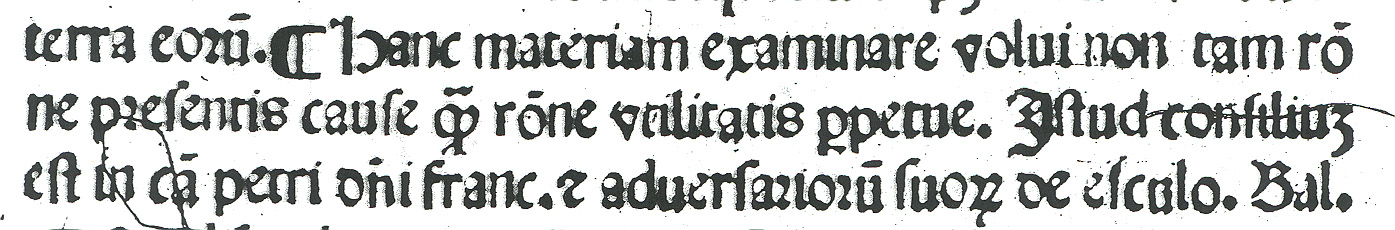 terra eorū.¶ Hanc materiam examinare volui non tam rō
ne presentis cause qꝫ̃ rōne vtilitatis ꝑpetue. Istud consiliuꝫ
est in cā petri dn̄i franc.⁊ aduersariorū suoꝝ de esculo. Bal.